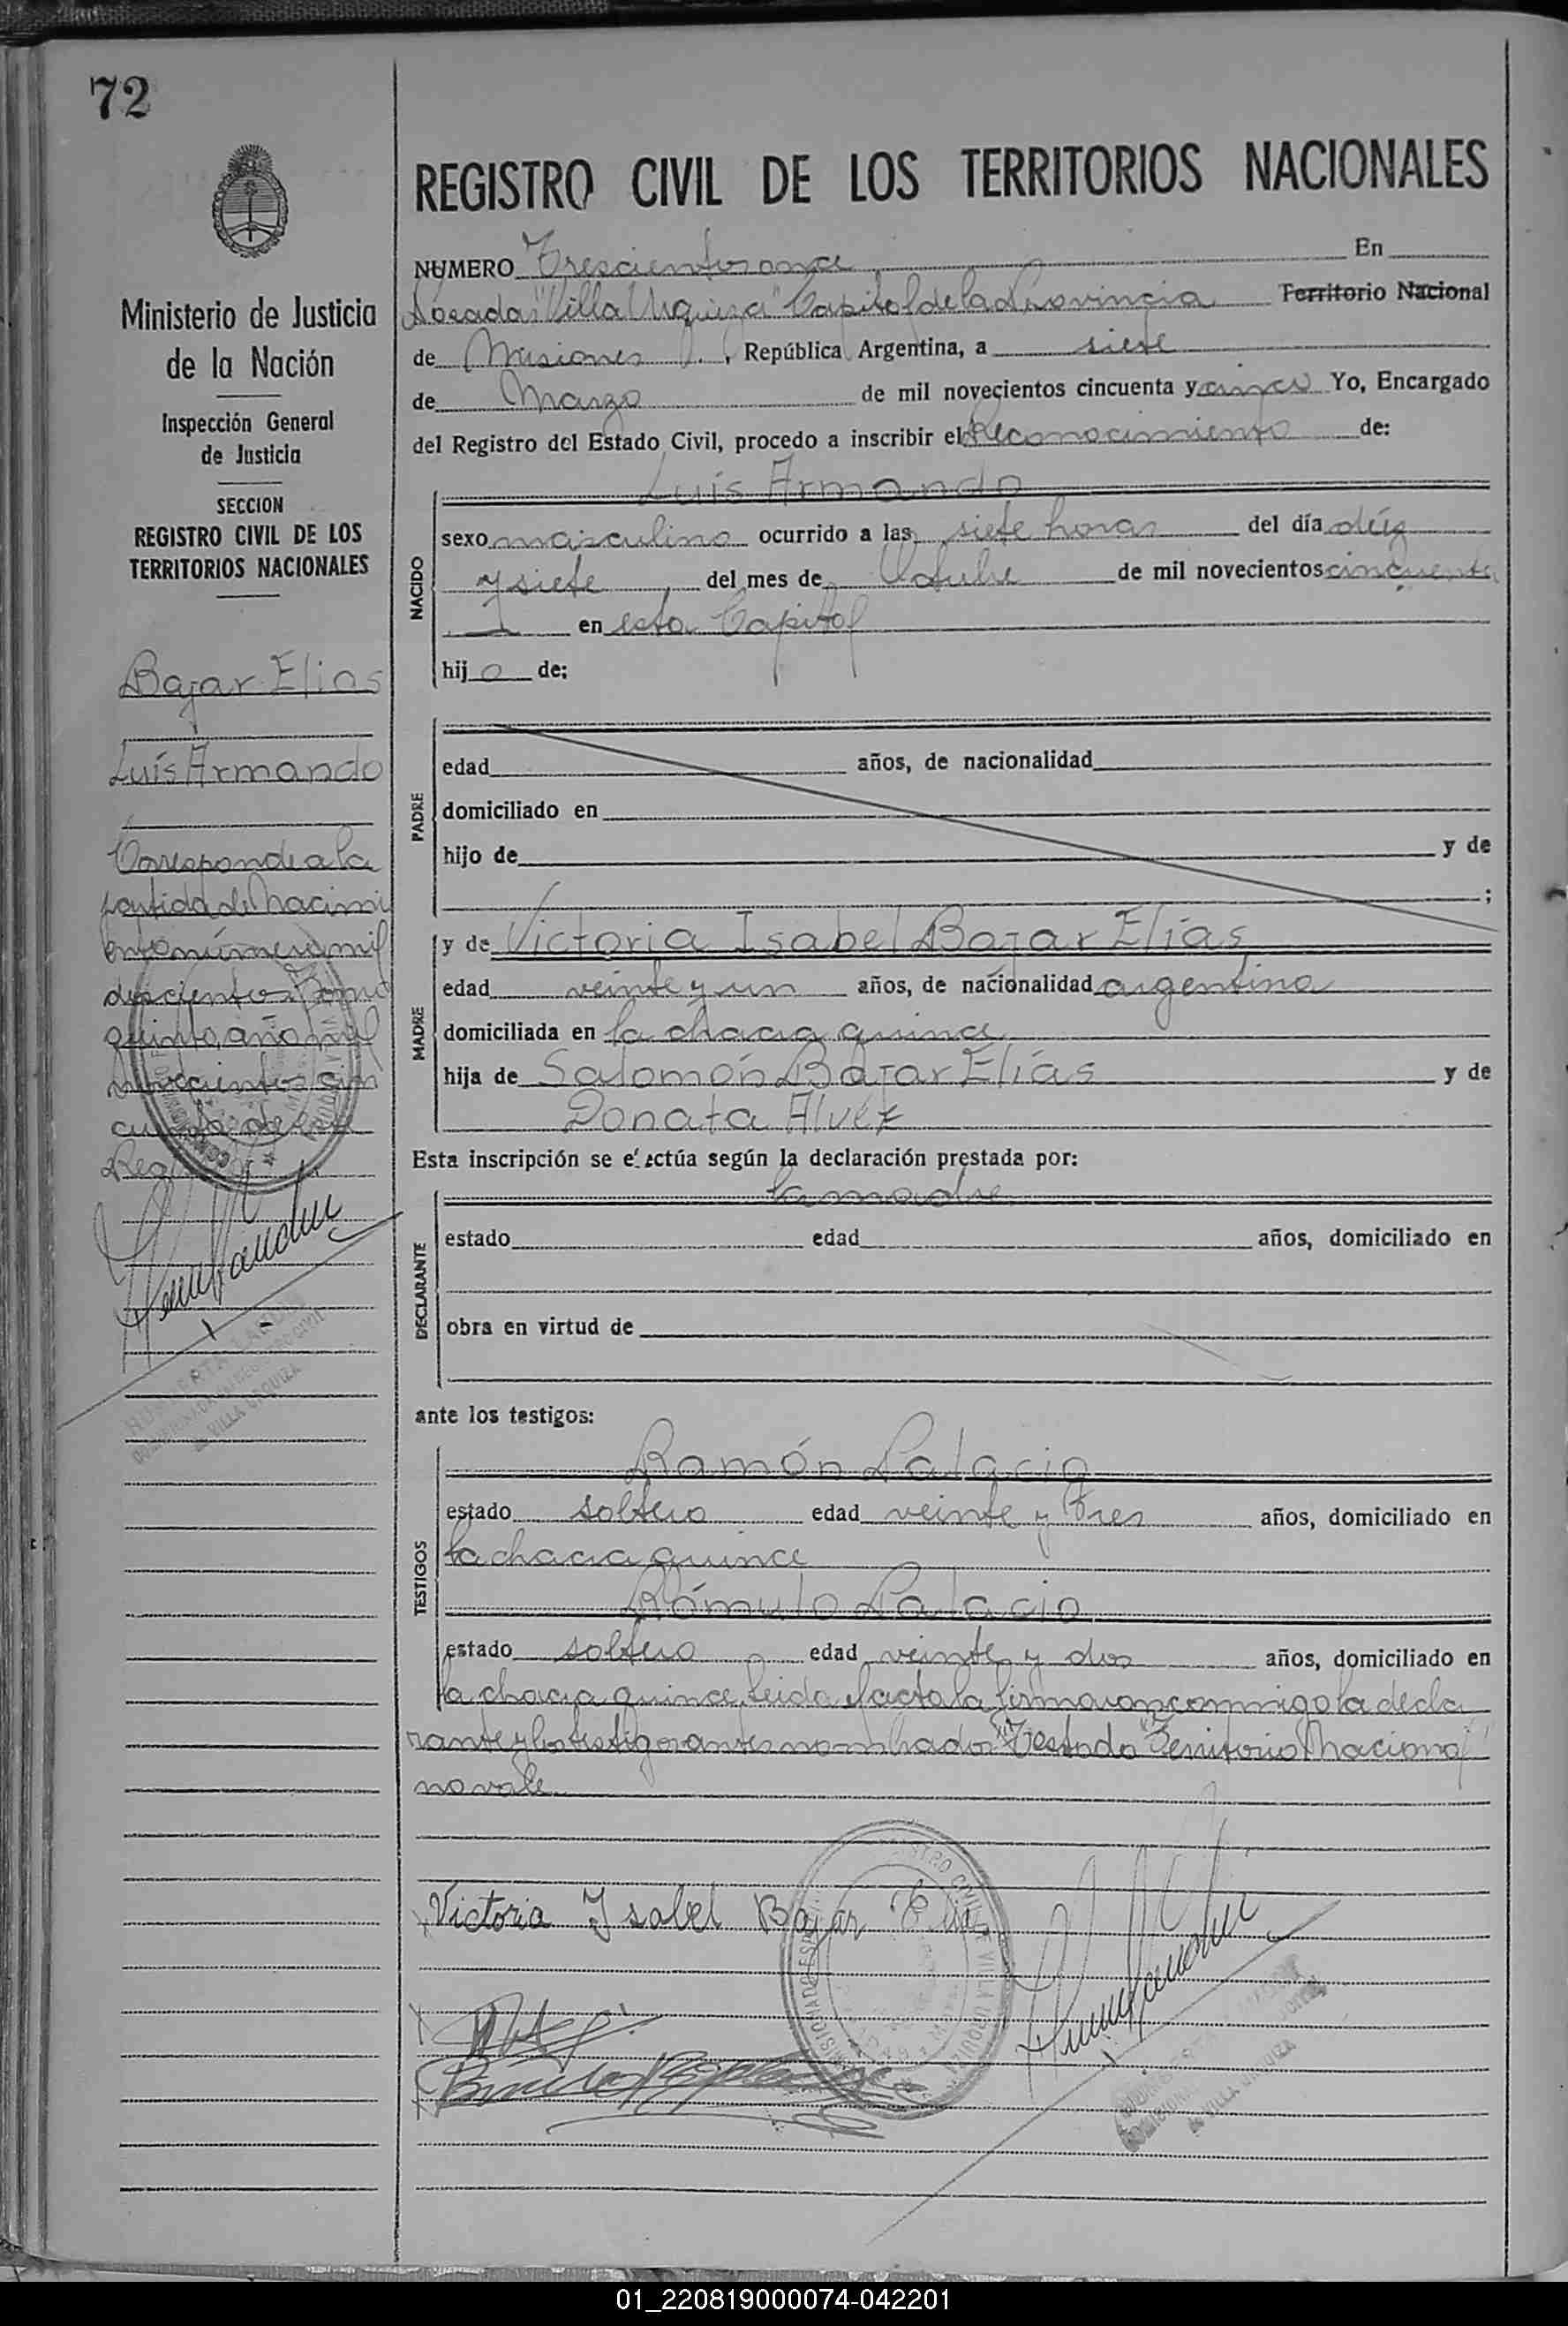 72
REGISTRO CIVIL DE LOS TERRITORIOS NACIONALES
NUMERO Trescientos once En
Rocada "Villa Urquiza" Capital de la Provincia Territorio Nacional
de Misiones, República Argentina, a siete
de Marzo de mil novecientos cincuenta y cinco Yo, Encargado
del Registro del Estado Civil, procedo a inscribir el Reconocimiento de:
Luis Armando
NACIDO
sexo masculino ocurrido a las siete horas del día diéz
y siete del mes de Octubre de mil novecientos cincuenta
en esta Capital
hijo de:
PADRE
edad años, de nacionalidad
domiciliado en
hijo de y de
;
MADRE
y de Victoria Isabel Bajar Elías
edad veinte y un años, de nacionalidad argentina
domiciliada en la chacra quince
hija de Salomón Bajar Elías y de
Donata Alvéz
Esta inscripción se efectúa según la declaración prestada por:
la madre
DECLARANTE
estado edad años, domiciliado en
obra en virtud de
ante los testigos:
TESTIGOS
Ramón Palacio
estado soltero edad veinte y tres años, domiciliado en
la chacra quince
Rómulo Palacio
estado soltero edad veinte y dos años, domiciliado en
la chacra quince, leida el acta la firmaron conmigo la decla
rante y los testigos antes nombrados "Testado "Territorio Nacional"
no vale
Victoria Ysabel Bajar Elias
Ministerio de Justicia
de la Nación
Inspección General
de Justicia
SECCION
REGISTRO CIVIL DE LOS
TERRITORIOS NACIONALES
Bajar Elías
Luís Armando
Corresponde a la
partida de nacimi
ento número mil
doscientos, tomo
quinto, año mil
novecientos cin
cuenta de este
Reg
VILLA URQUIZA
01_220819000074-042201